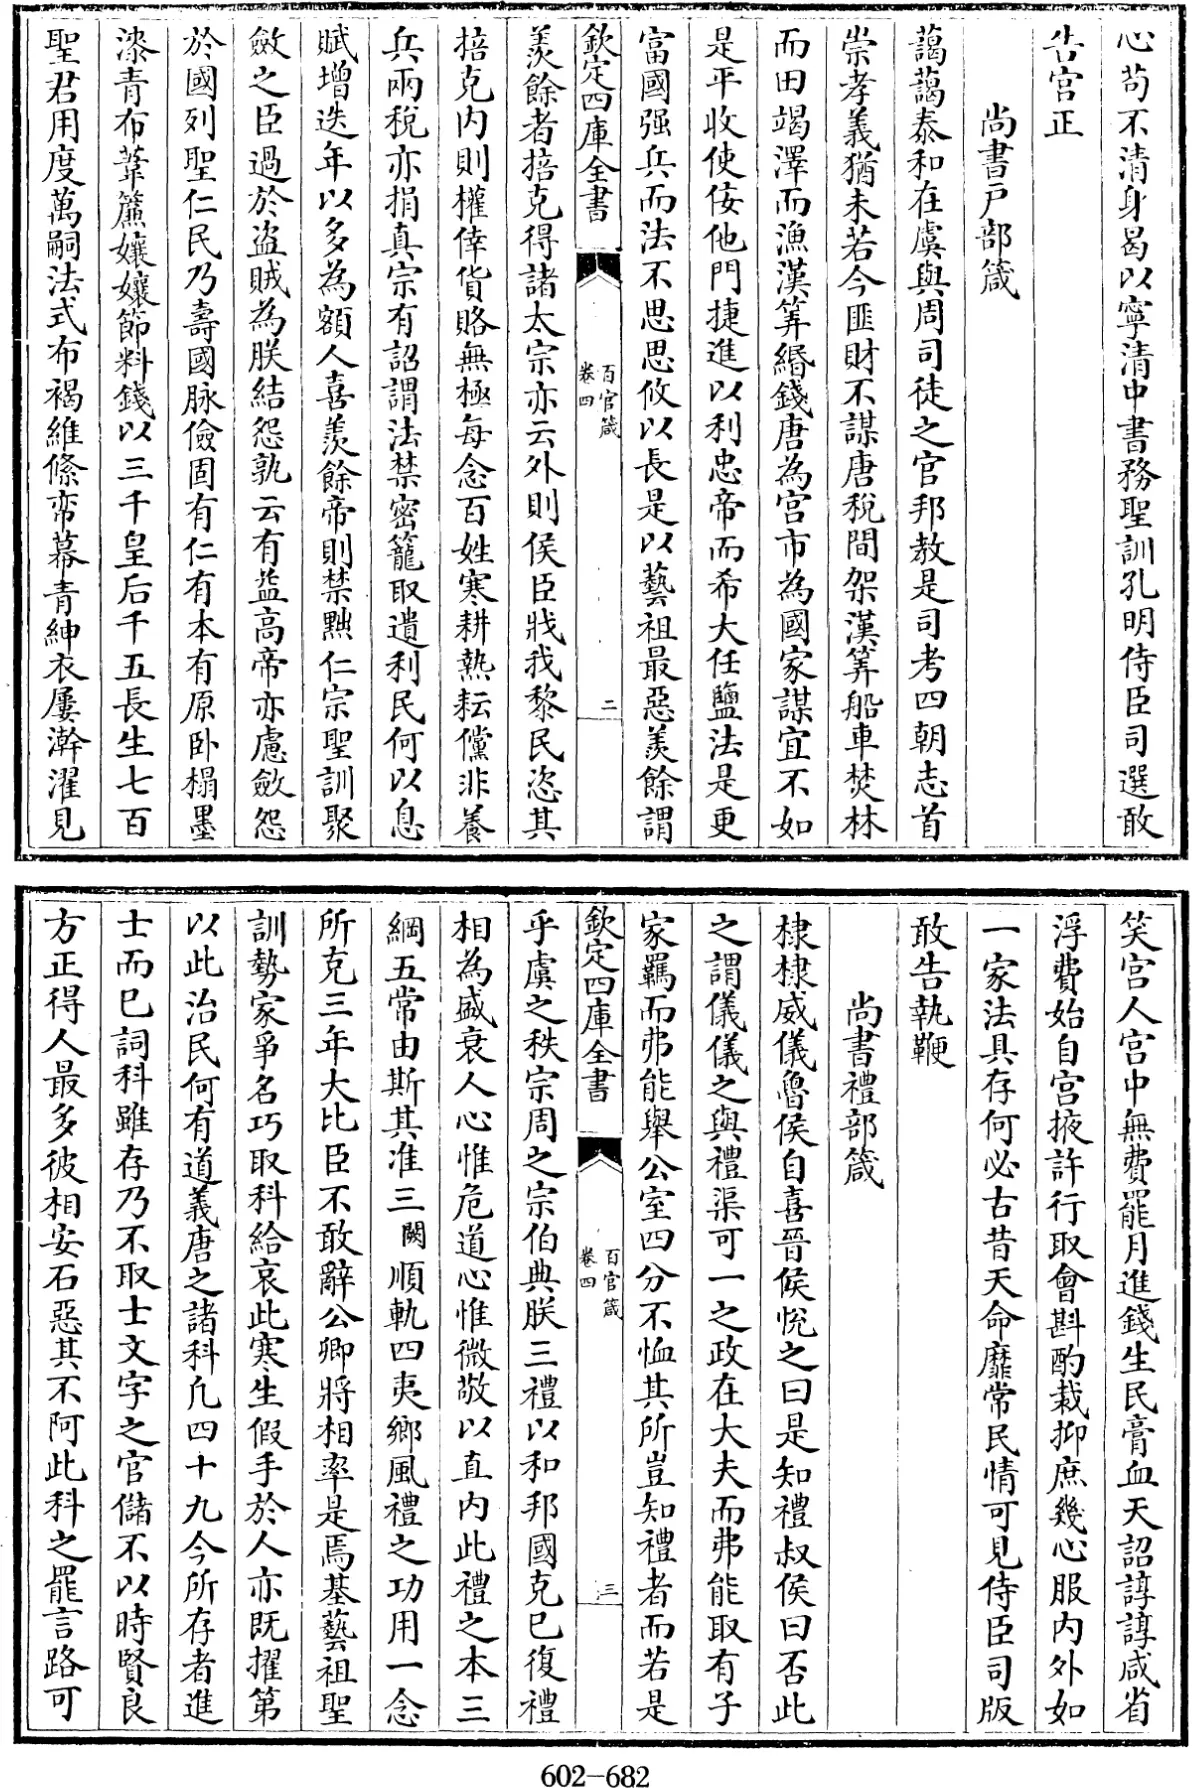 心苟不清身曷以寧清中書務聖訓孔明侍臣司選敢
告宫正
尚書戸部箴
藹藹泰和在虞與周司徒之官邦教是司考四朝志首
崇孝義猶未若今匪財不謀唐稅間架漢筭船車焚林
而田竭澤而漁漢筭緡錢唐為宫市為國家謀宜不如
是平收使侫他門捷進以利忠帝而希大任鹽法是更
富國强兵而法不思思攸以長是以藝祖最惡羨餘謂
欽定四庫全書
百官箴
卷四
二
羨餘者掊克得諸太宗亦云外則侯臣戕我黎民恣其
掊克内則權倖貨賂無極每念百姓寒耕熱耘儻非養
兵兩稅亦捐真宗有詔謂法禁密籠取遺利民何以息
賦增迭年以多為額人喜羨餘帝則禁黜仁宗聖訓聚
斂之臣過於盜賊為朕結怨孰云有益高帝亦慮斂怨
於國列聖仁民乃壽國脉儉固有仁有本有原卧榻墨
漆青布葦簾孃孃節料錢以三千皇后千五長生七百
聖君用度萬嗣法式布褐維絛帟幕青紳衣屢澣濯見
笑宫人宫中無費罷月進錢生民膏血天詔諄諄咸省
浮費始自宫掖許行取會斟酌裁抑庶幾心服内外如
一家法具存何必古昔天命靡常民情可見侍臣司版
敢告執鞭
尚書禮部箴
棣棣威儀魯侯自喜晉侯恱之曰是知禮叔侯曰否此
之謂儀儀之與禮渠可一之政在大夫而弗能取有子
家羈而弗能舉公室四分不恤其所豈知禮者而若是
欽定四庫全書
百官箴
卷四
三
乎虞之秩宗周之宗伯典朕三禮以和邦國克已復禮
相為盛衰人心惟危道心惟微敬以直内此禮之本三
綱五常由斯其准三闕順軌四夷鄉風禮之功用一念
所克三年大比臣不敢辭公卿將相率是焉基藝祖聖
訓勢家爭名巧取科給哀此寒生假手於人亦既擢第
以此治民何有道義唐之諸科凡四十九今所存者進
士而已詞科雖存乃不取士文字之官儲不以時賢良
方正得人最多彼相安石惡其不阿此科之罷言路可
602-682